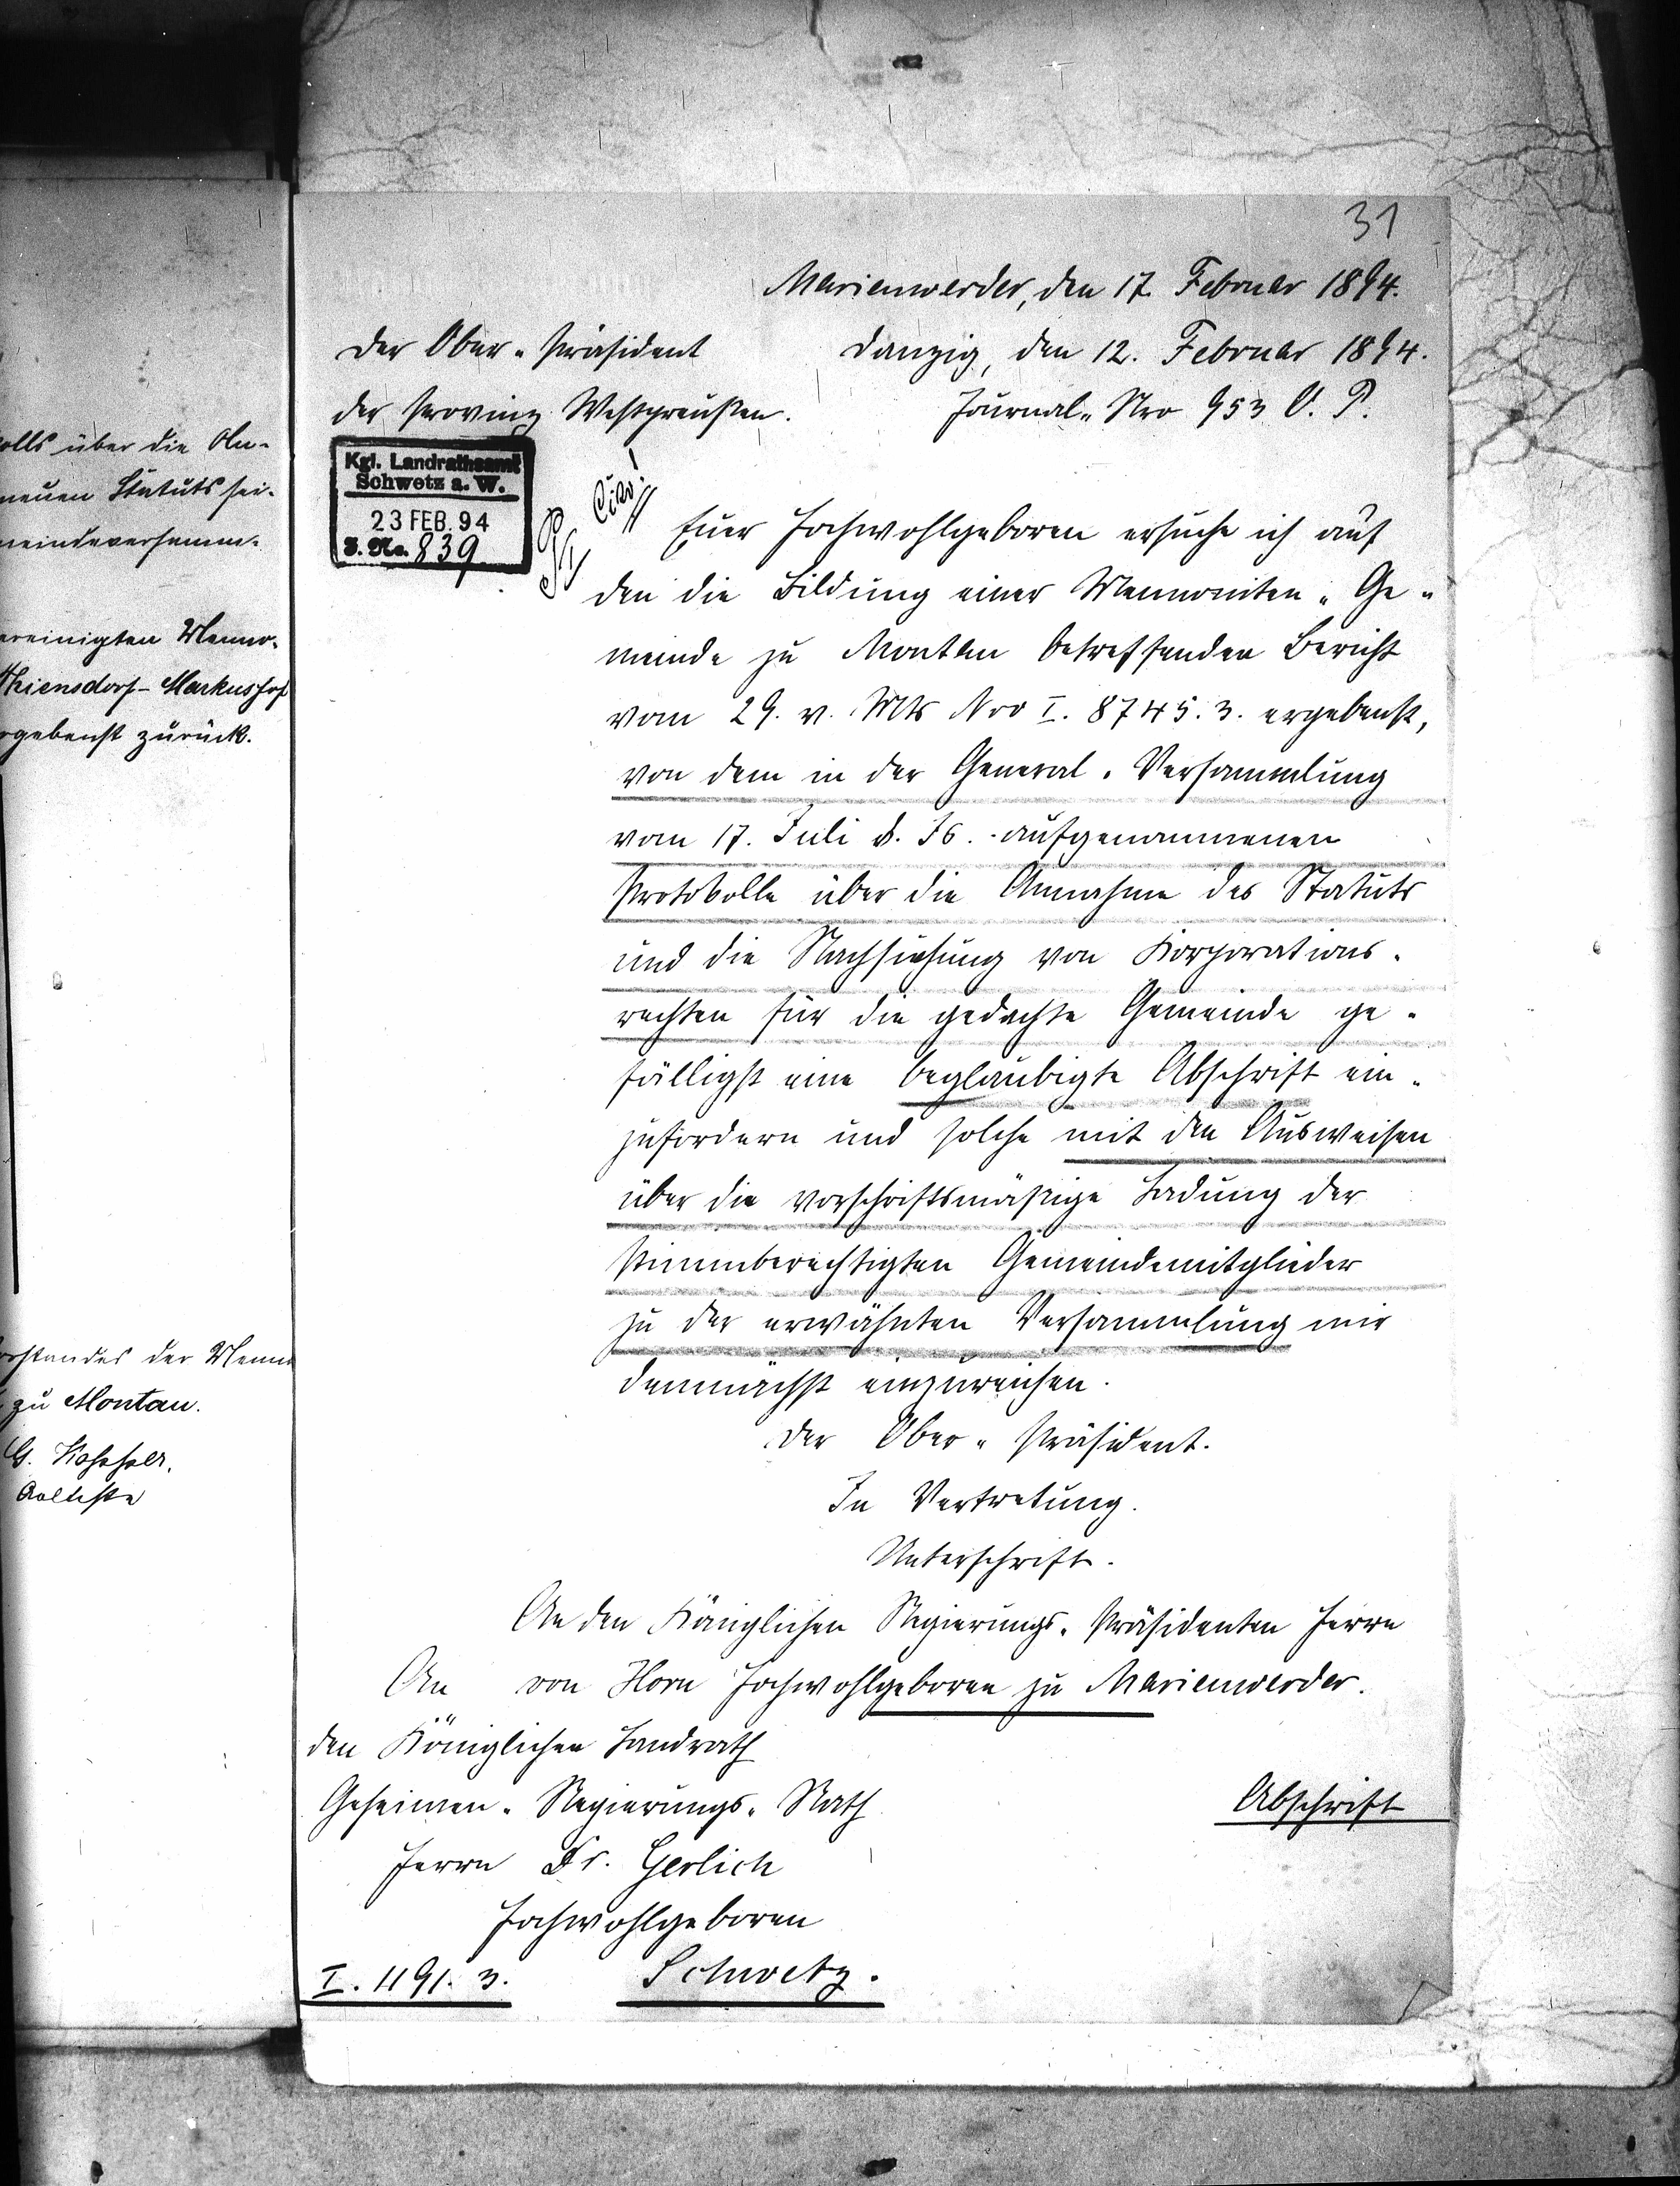 olls über die An-
neuen Statuts sei-
meindeversamm-
ereinigten Menno-
Thiensdorf-Markushof
rgebenst zurück.
rstandes der Menno
zu Montau.
G.
Aelteste
31
Marienwerder, den 17. Februar 1894.
Der Ober-Präsident
Danzig, den 12. Februar 1894.
der Provinz Westpreußen.
Journal-Nro 953 O. P.
Kgl. Landrathsamt
Schwetz a. W.
23 FEB. 94
J. No. 839
Cito!
Euer Hochwohlgeboren ersuche ich auf
den die Bildung einer Mennoniten-Ge-
meinde zu Montau betreffenden Bericht
vom 29. v. Mts Nro I. 8745. 3. ergebenst,
von dem in der General-Versammlung
vom 17. Juli v. Js. aufgenommenen
Protokolle über die Annahme des Statuts
und die Nachsuchung von Korporations-
rechten für die gedachte Gemeinde ge-
fälligst eine beglaubigte Abschrift ein-
zufordern und solche mit den Ausweisen
über die vorschriftsmäßige Ladung der
stimmberechtigten Gemeindemitglieder
zu der erwähnten Versammlung mir
demnächst einzureichen.
Der Ober-Präsident.
In Vertretung.
Unterschrift.
An den Königlichen Regierungs-Präsidenten Herrn
von Horn Hochwohlgeboren zu Marienwerder.
An
den Königlichen Landrath
Geheimen-Regierungs-Rath
Abschrift
Herrn Dr. Gerlich
Hochwohlgeboren
I. 1191. 3.
Schwetz.